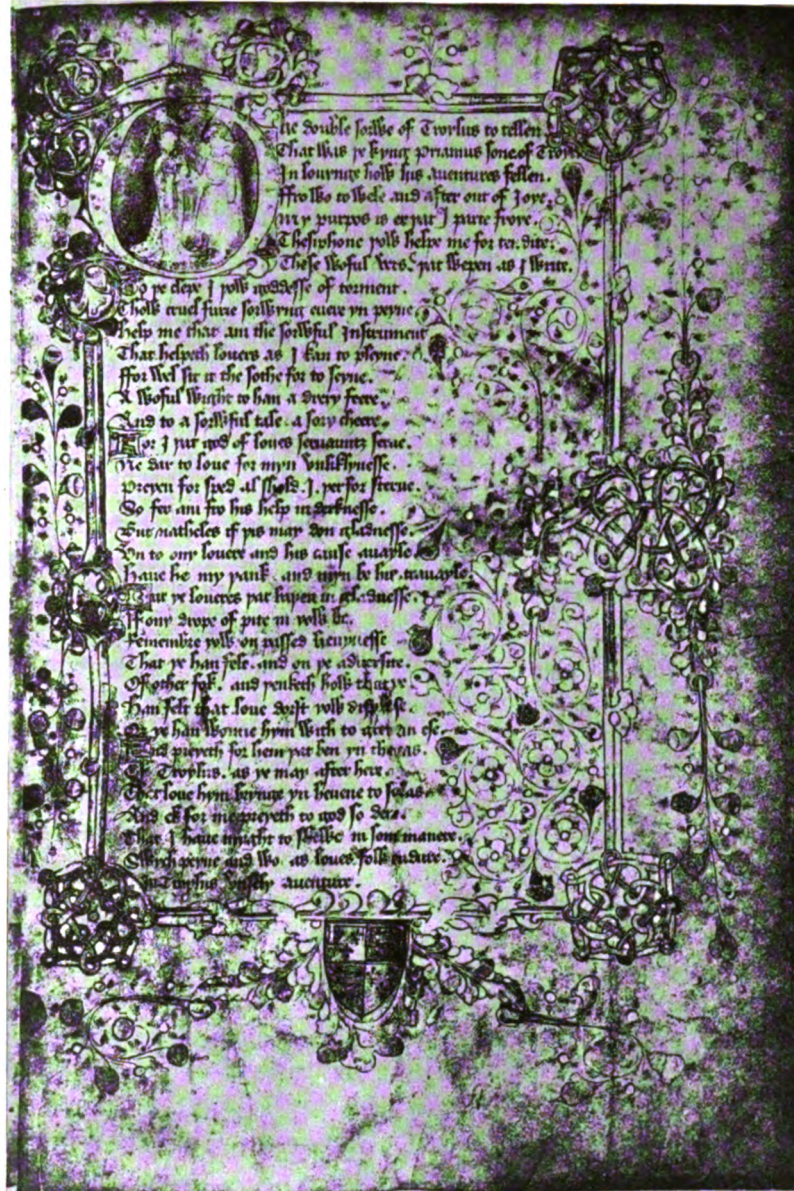 The double sorwe of Troylus to tellen.
That was þe kyng Priamus sone of Troye
In louynge how his auentures fellen.
Ffro wo to wele and after out of Joye.
my purpos is er þat I parte froye.
Thesiphone þow helpe me for tendite.
These woful vers. þat wepen as I write.
To þe clepe I þow goddesse of torment.
Thow cruel furie sorwyng euere yn peyne.
help me that am the sorwful Instrument
That helpeth louers as I kan to pleyne.
ffor wel sit it the sothe for to seyne.
A woful wight to han a drery feere.
And to a sorwful tale. a sory cheere.
For I þat god of loues seruauntz serue.
Ne dar to loue for myn vnliklynesse.
preyen for sped al shold. I. þerfor sterue.
So fer am fro his help in derknesse.
But natheles if þis may don gladnesse.
Vn to ony louere and his cause auayle.
Haue he my þank. and myn be his trauayle.
But ȝe loueres þat baþen in gladnesse.
If ony drope of pite in ȝow be.
Remembre ȝow on passed heuynesse
That ȝe han felt. and on þe aduersite.
Of other folk. and þenketh how that ȝe.
Han felt that loue dorst ȝow displese.
Or ȝe han wonne hym with to gret an ese
And preyeth for hem þat ben yn the cas.
Of Troylus. as ȝe may after here.
That loue hem brynge yn heuene to solas.
And ek for me preyeth to god so dere.
That I haue myght to shewe in som manere.
Swych peyne and wo. as loues folk endure.
In Troylus vnsely auenture.